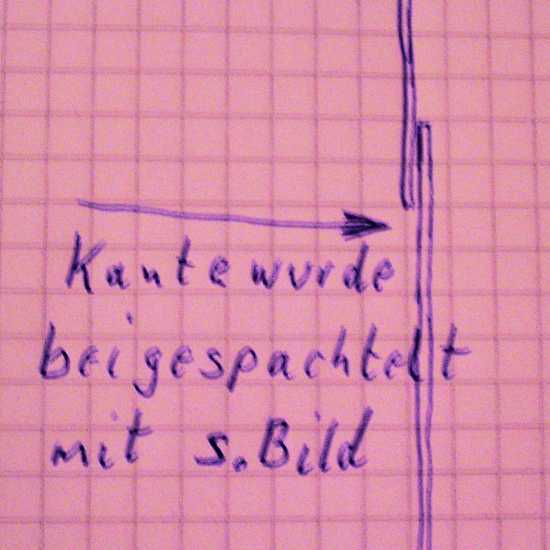 Kante wurde
beigespachtelt
mit s. Bild